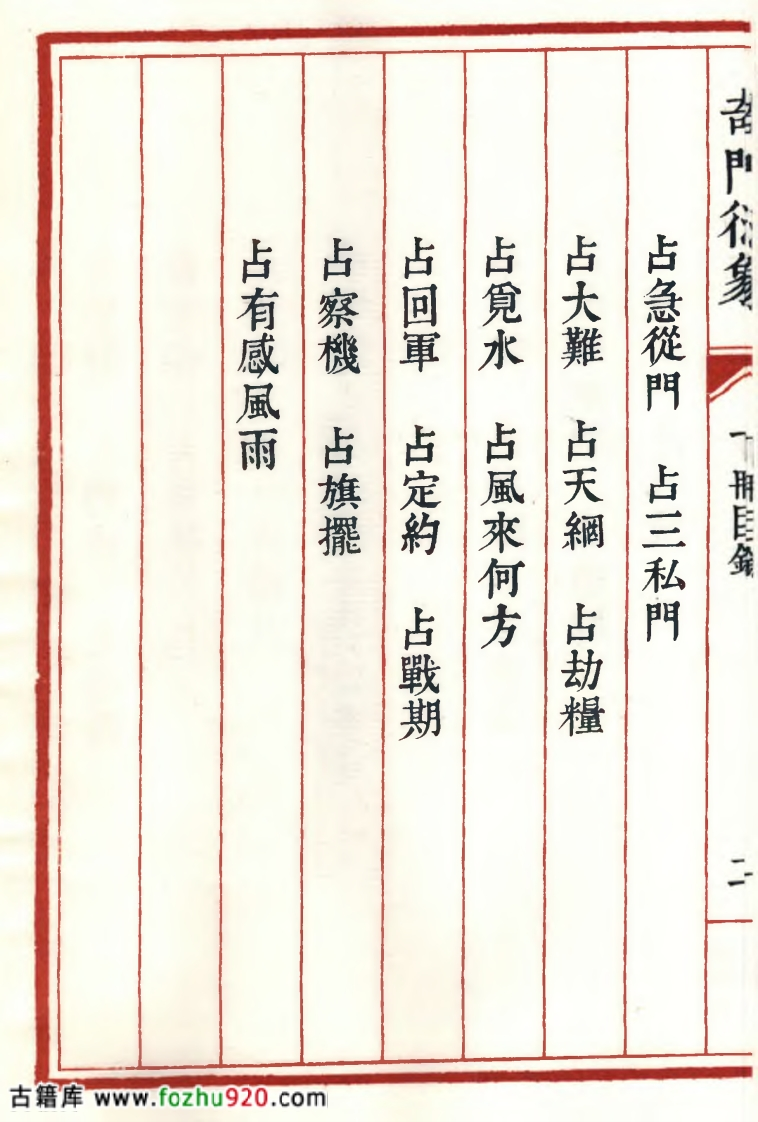 奇門衍象
冊目錄
二
占急從門 占三私門
占大難 占天網 占劫糧
占覓水 占風來何方
占回軍 占定約 占戰期
占察機 占旗擺
占有感風雨
古籍库 www.fozhu920.com